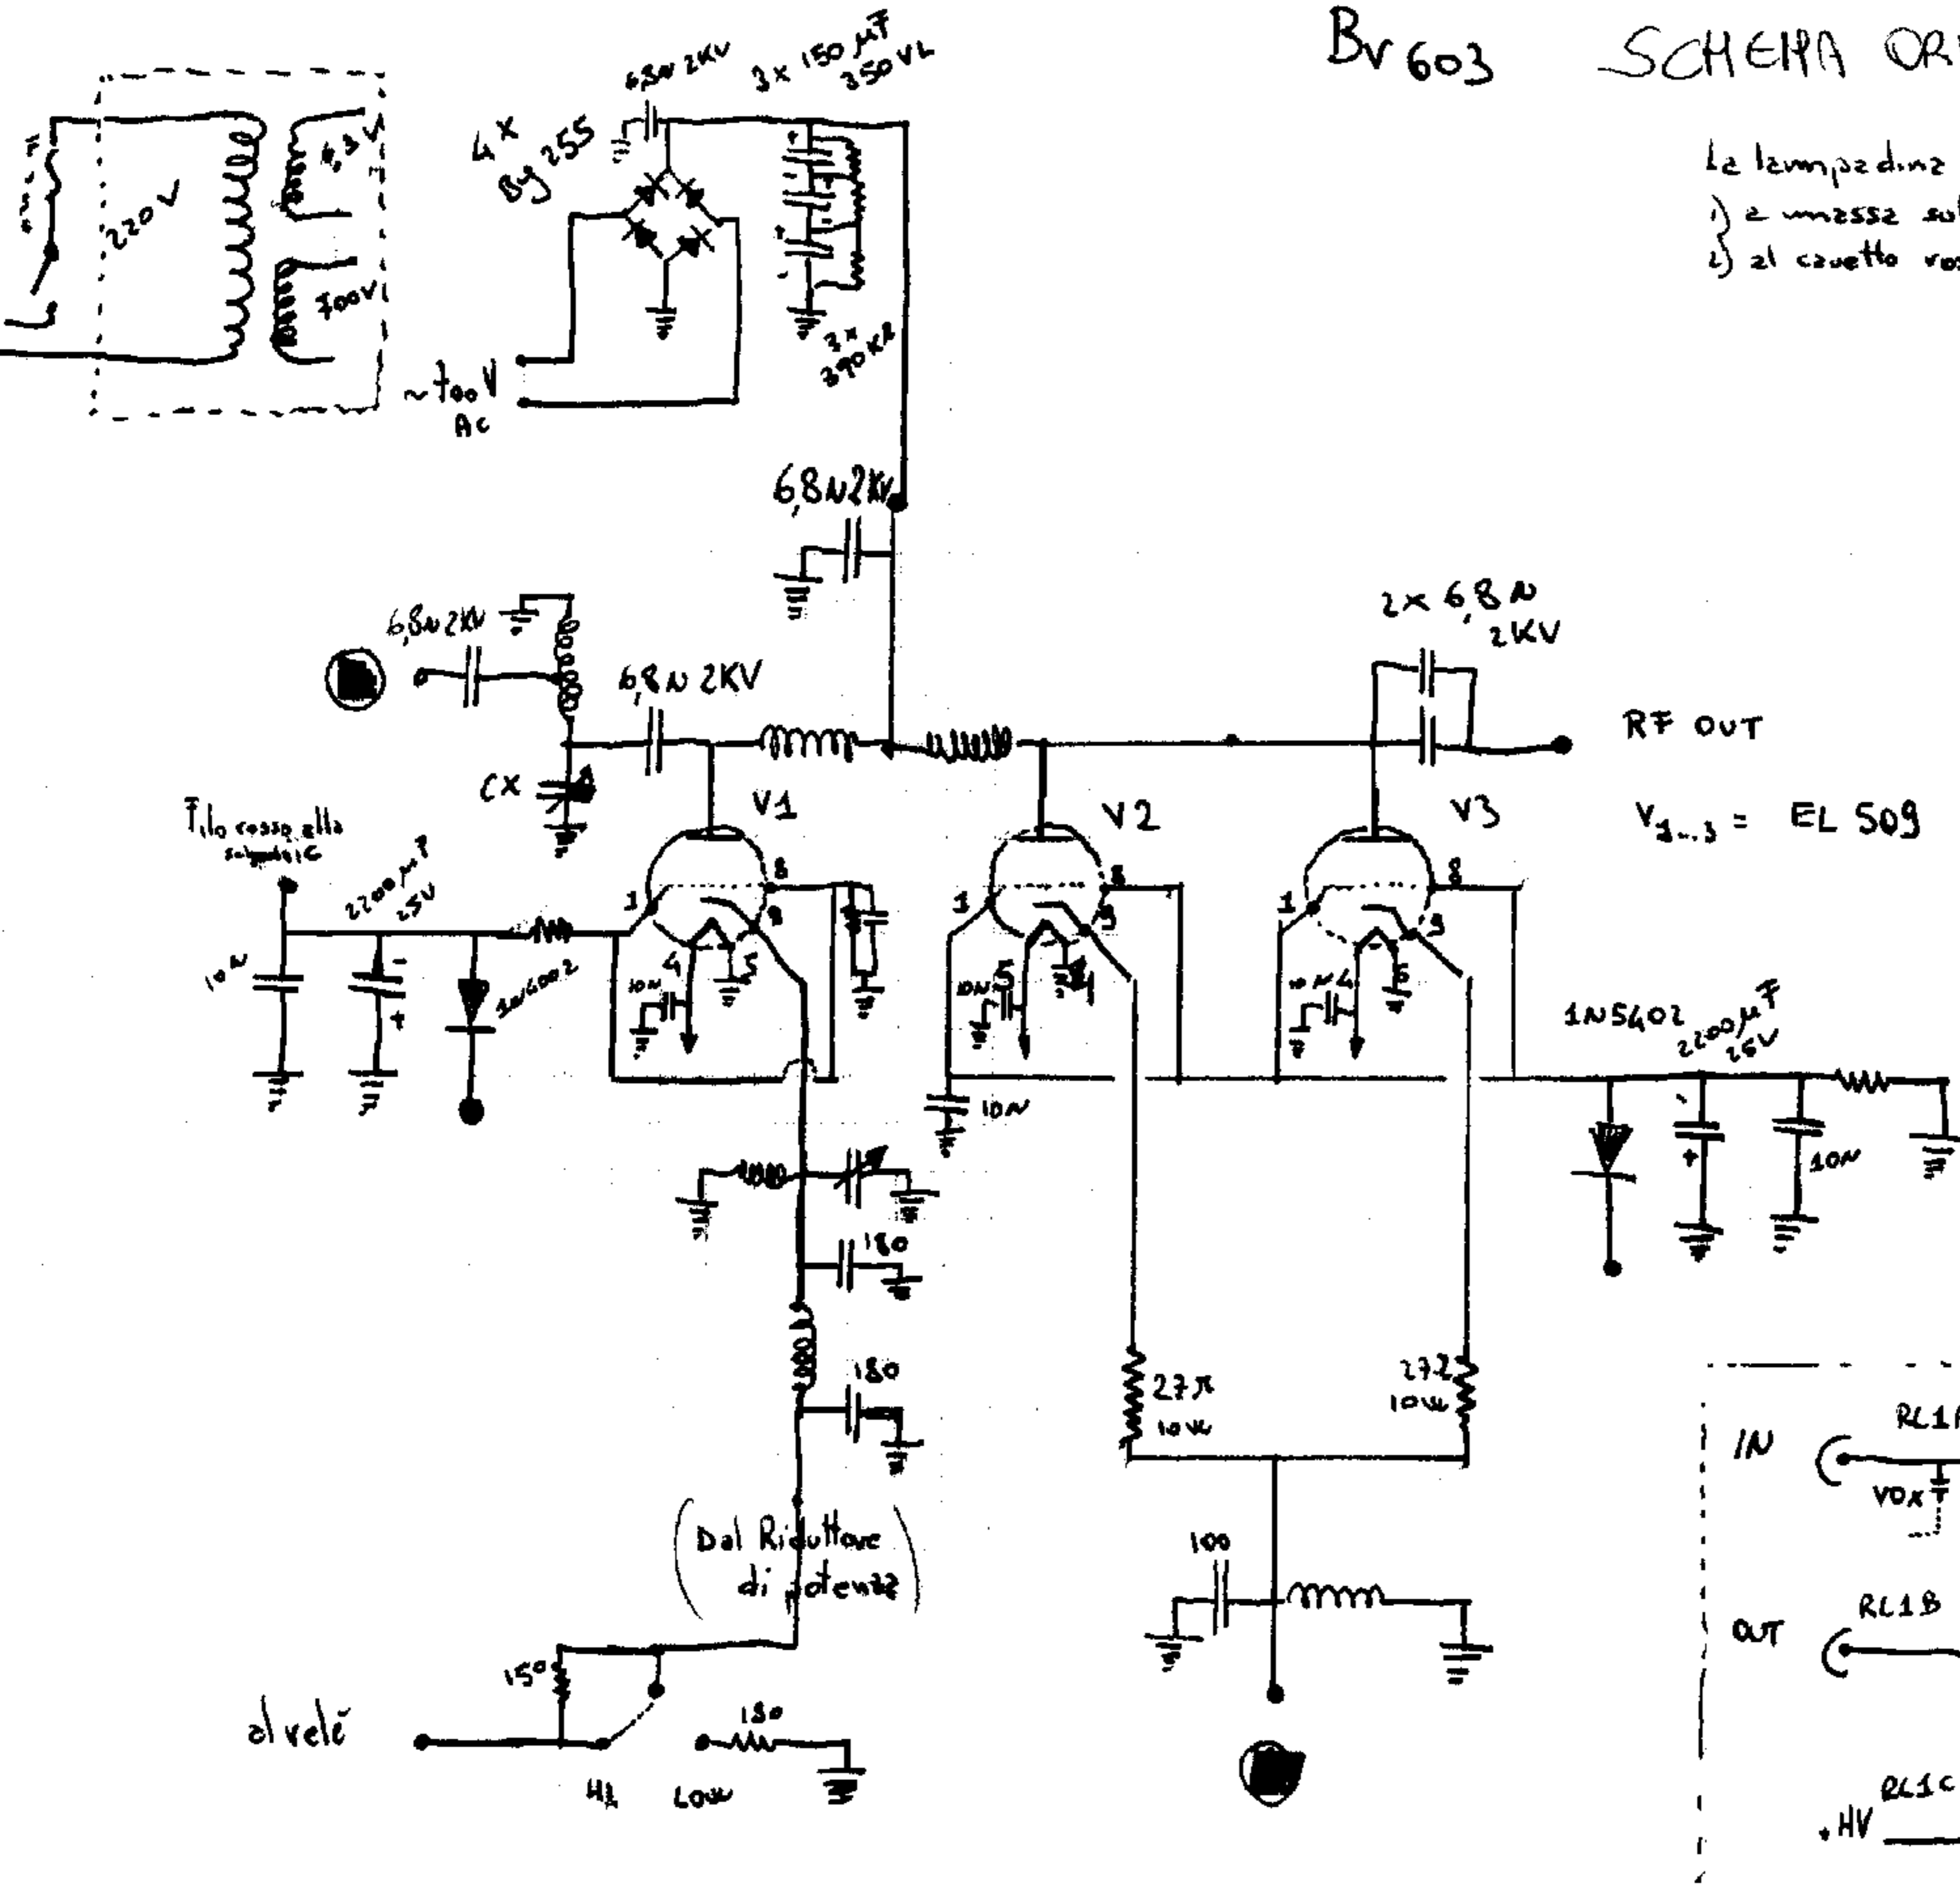 BV 603 SCHEMA OR
La lampadina
1) a massa sul
2) al cavetto ros
220V
6,3V
700V
4x
By 255
6,8N 2KV
3x 150 µF
350 VL
3x
390 KΩ
~700V
AC
6,8N 2KV
6,8N 2KV
6,8N 2KV
2x 6,8N
2KV
RF OUT
CX
V1
V2
V3
V1...3 = EL 509
Filo rosso alla
2200 µF
25V
10N
1
8
4
5
10N
1
8
9
5
10N
1
8
9
4
10N
10N
1N5402
2200 µF
25V
10N
180
180
27Ω
10W
10W
(Dal Riduttore
di potenza)
100
150
al relè
180
HI
LOW
IN
RL1A
VOX
OUT
RL1B
RL1C
+HV